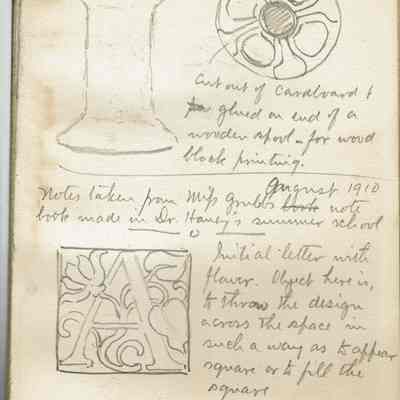 Cut out of Cardboard &
glued on end of a
wooden spool - for wood
block printing.
August 1910
Notes taken from Miss Grubb's book note
book made in Dr. Haney's summer school
A
Initial letter with
flower. Object here is,
to throw the design
across the space in
such a way as to appear
square or to fill the
square